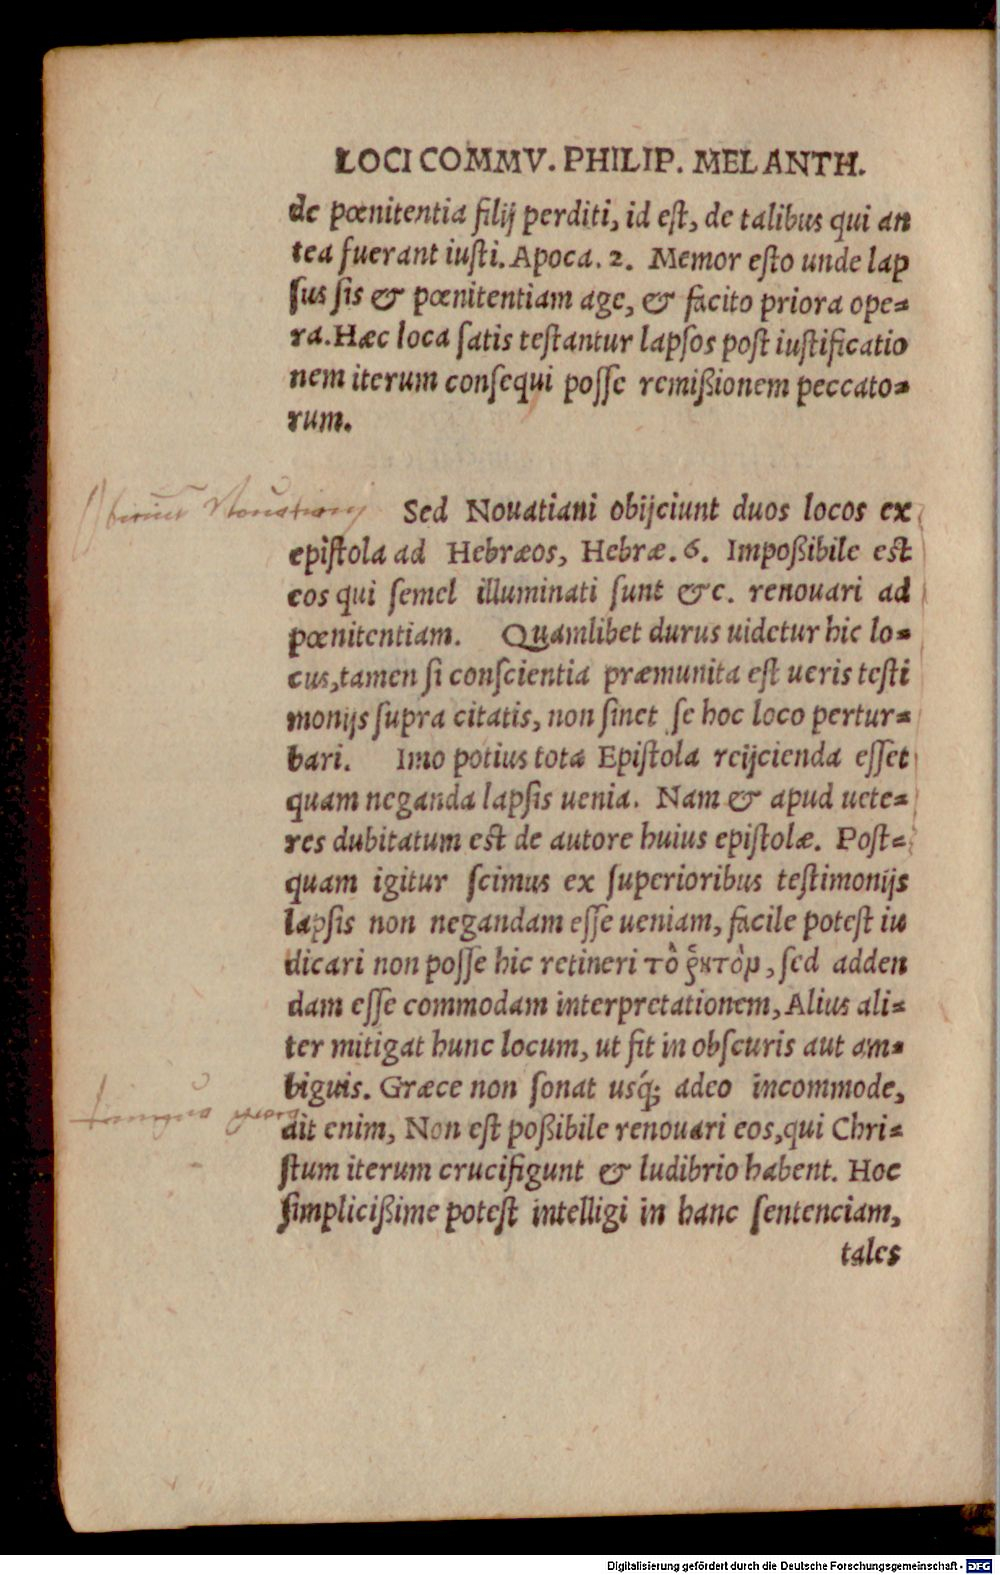 LOCI COMMV. PHILIP. MELANTH.
de pœnitentia filij perditi, id est, de talibus qui an
tea fuerant iusti. Apoca. 2. Memor esto unde lap
sus sis & pœnitentiam age, & facito priora ope=
ra. Hæc loca satis testantur lapsos post iustificatio
nem iterum consequi posse remißionem peccato=
rum.
Sed Nouatiani obijciunt duos locos ex
epistola ad Hebræos, Hebræ. 6. Impoßibile est
eos qui semel illuminati sunt &c. renouari ad
pœnitentiam. Quamlibet durus uidetur hic lo=
cus, tamen si conscientia præmunita est ueris testi
monijs supra citatis, non sinet se hoc loco pertur=
bari. Imo potius tota Epistola reijcienda esset
quam neganda lapsis uenia. Nam & apud uete=
res dubitatum est de autore huius epistolæ. Post=
quam igitur scimus ex superioribus testimonijs
lapsis non negandam esse ueniam, facile potest iu
dicari non posse hic retineri τὸ ῥητὸν, sed adden
dam esse commodam interpretationem, Alius ali=
ter mitigat hunc locum, ut fit in obscuris aut am=
biguis. Græce non sonat usq́; adeo incommode,
ait enim, Non est poßibile renouari eos, qui Chri=
stum iterum crucifigunt & ludibrio habent. Hoc
simplicißime potest intelligi in hanc sentenciam,
tales
Digitalisierung gefördert durch die Deutsche Forschungsgemeinschaft - DFG